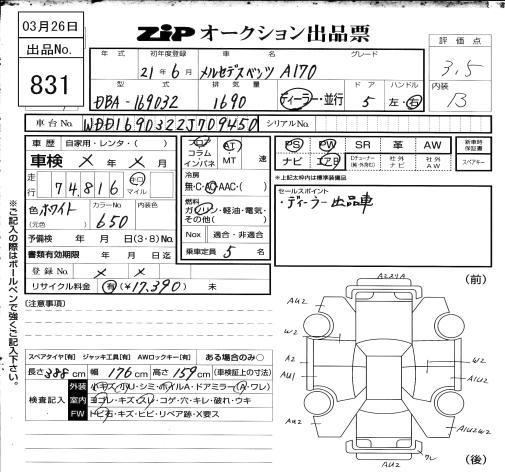 03月26日
ZIP オークション出品票
出品No.
831
年式
初年度登録
車名
グレード
評価点
21年6月
メルセデスベンツ A170
3.5
型式
排気量
ドア
ハンドル
内装
DBA-169032
1690
ディーラー・並行
5
左・右
B
車台No.
WDD1690322J709450
シリアルNo.
車歴
自家用・レンタ・( )
車検 × 年 × 月
走行
74,816
キロ
マイル
色
ホワイト
(元色)
カラーNo.
650
内装色
予備検 年 月 日(3・8)No.
書類有効期限 年 月 日迄
登録No. × ×
リサイクル料金 有(¥17,390) 未
フロア
コラム
インパネ
AT
MT
速
冷房
無・C・AC・AAC・( )
燃料
ガソリン・軽油・電気・
その他( )
Nox 適合・非適合
乗車定員 5 名
PS PW SR 革 AW
ナビ エアB
Dチューナー
(純・外含む)
社外
ナビ
社外
AW
新車時
保証書
スペアキー
※上記太枠内は標準装備品
セールスポイント
・ディーラー出品車
※ご記入の際はボールペンで強くご記入下さい。
(注意事項)
スペアタイヤ[有] ジャッキ工具[有] AWロックキー[有] ある場合のみ○
長さ 388 cm 幅 176 cm 高さ 159 cm (車検証上の寸法)
検査記入
外装 小キズ・凹U・シミ・ホイルA・ドアミラー(A・ワレ)
室内 ヨゴレ・キズ・スレ・コゲ・穴・キレ・破れ・ウキ
FW トビ石・キズ・ヒビ・リペア跡・X要ス
(前)
AU2
W2
A2
AU1
AU2
W2
A1U2
A1U2W2
AU2
ワレ
(後)